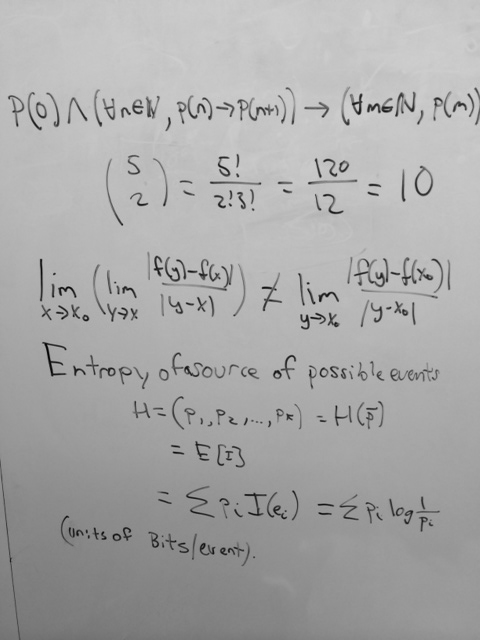 P(0) ∧ (∀n∈ℕ, p(n) → P(n+1)) → (∀m∈ℕ, P(m))
(5 2) = 5!/2!3! = 120/12 = 10
lim x→x₀ (lim y→x |f(y)-f(x)|/|y-x|) ≠ lim y→x₀ |f(y)-f(x₀)|/|y-x₀|
Entropy of a source of possible events
H = (P₁, P₂, ..., Pₖ) = H(p̄)
= E[I]
= Σ Pᵢ I(eᵢ) = Σ Pᵢ log 1/Pᵢ
(units of Bits/event).